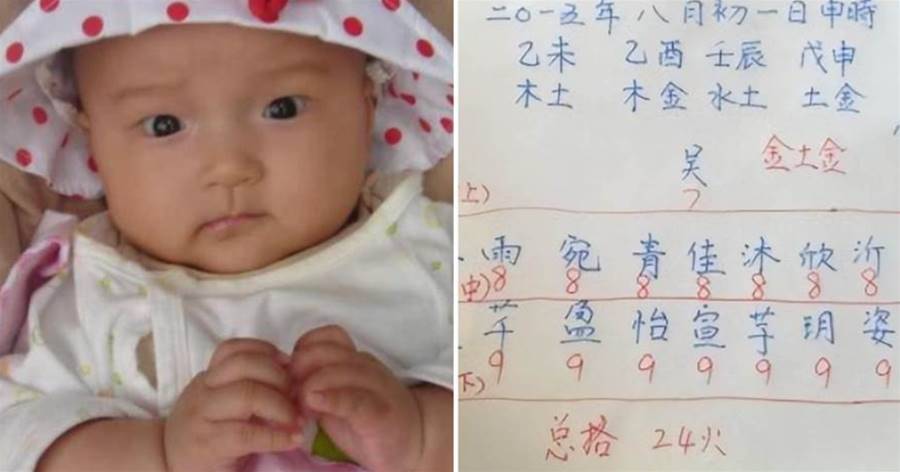 二〇一五年八月初一日申時
乙未 乙酉 壬辰 戊申
木土 木金 水土 土金
吴 金土金
上) 7
雨 宛 青 佳 沐 欣 沂
中) 8 8 8 8 8 8 8
芊 盈 怡 宣 芋 玥 姿
下) 9 9 9 9 9 9 9
总格 24火